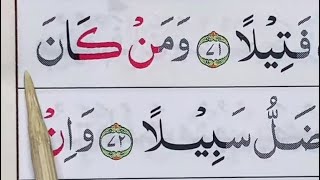 فَتِيْلًا ﴿٧١﴾ وَمَنْ كَانَ
ضَلُّ سَبِيْلًا ﴿٧٢﴾ وَاِنْ